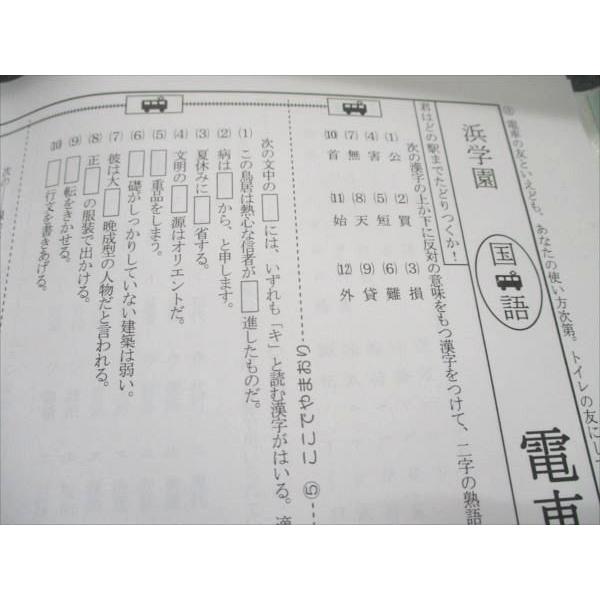 ㊟ 電車の友といえども、あなたの使い方次第。トイレの友にして
電車
浜学園
国語
君はどの駅までたどりつくか!
次の漢字の上か下に反対の意味をもつ漢字をつけて、二字の熟語
(1) 公
(2) 質
(3) 損
(4) 害
(5) 短
(6) 難
(7) 無
(8) 天
(9) 貸
(10) 首
(11) 始
(12) 外
⑤ ここでやまおり
次の文中の□には、いずれも「キ」と読む漢字がはいる。適
(1) この鳥居は熱心な信者が□進したものだ。
(2) 病は□から、と申します。
(3) 夏休みに□省する。
(4) 文明の□源はオリエントだ。
(5) □重品をしまう。
(6) □礎がしっかりしていない建築は弱い。
(7) 彼は大□晩成型の人物だと言われる。
(8) 正□の服装で出かける。
(9) □転をきかせる。
(10) □行文を書きあげる。
次の